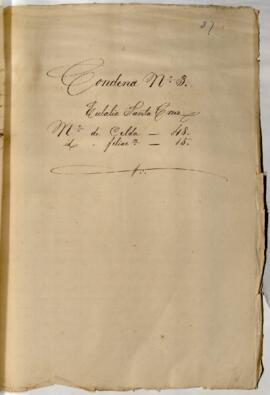 37.
Condena Nº 3.
Eulalia Santa Cruz
Mº de Celda — 48.
d . filiacn — 15.